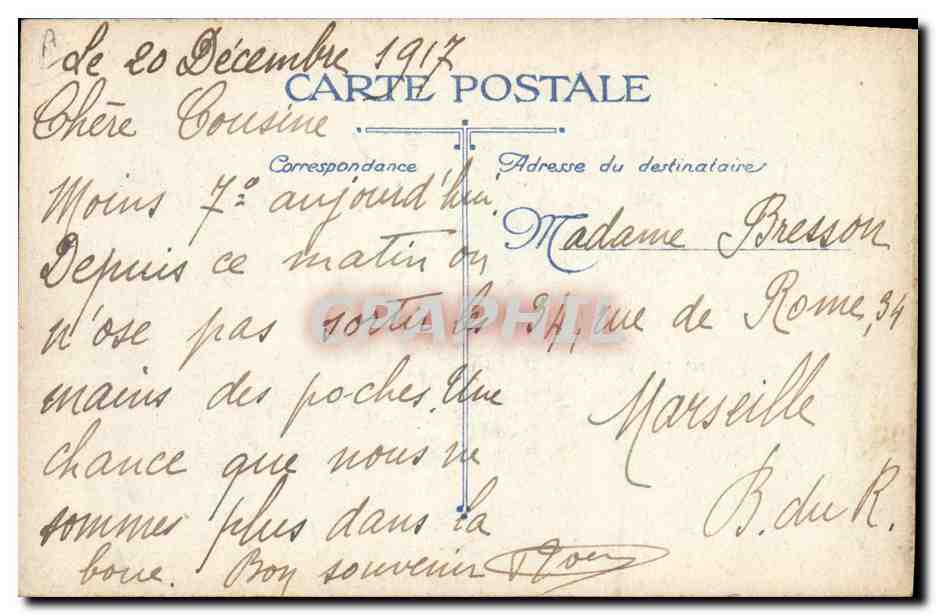 Le 20 Décembre 1917
CARTE POSTALE
Chère Cousine
Correspondance
Moins 7° aujourd'hui.
Depuis ce matin on
n'ose pas sortir les
mains des poches. Une
chance que nous ne
sommes plus dans la
boue. Bon souvenir
Adresse du destinataire
Madame Bresson
34, rue de Rome, 34
Marseille
B. du R.
CPAPHIL